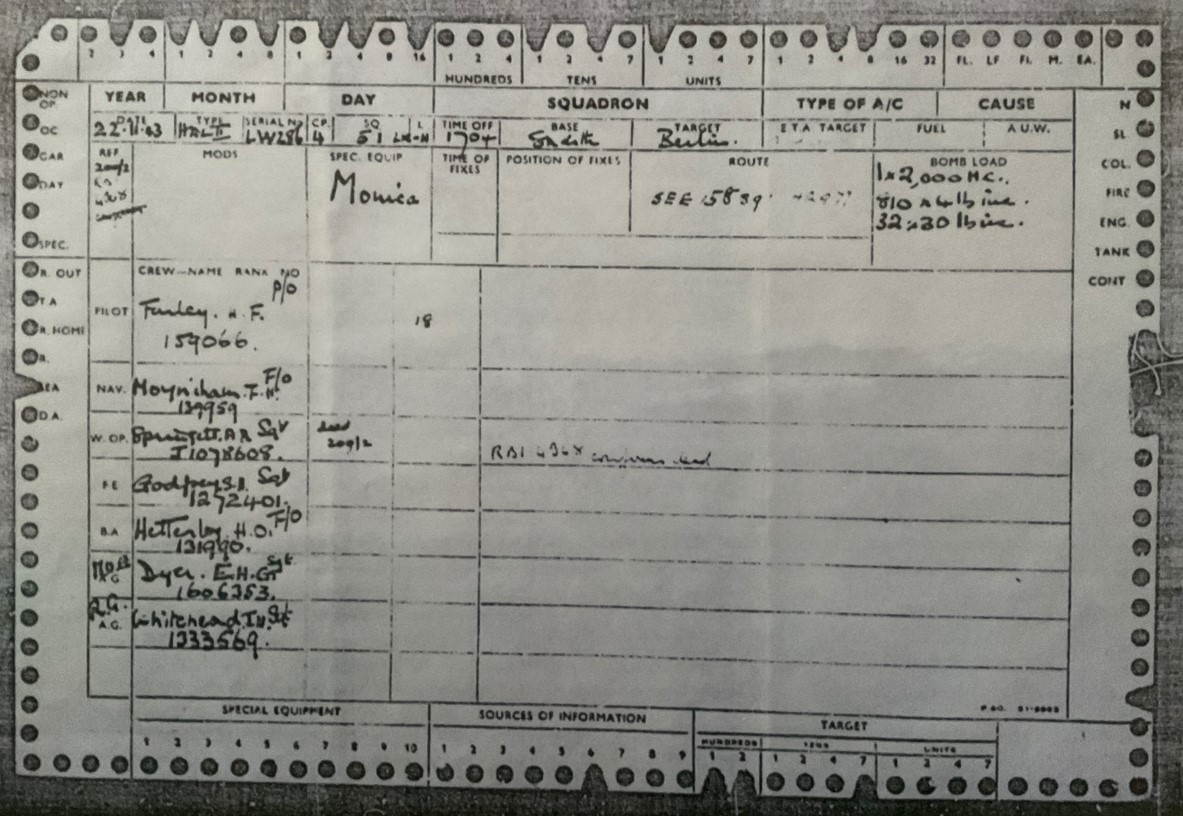 2 3 4 1 2 4 8 1 2 4 8 16 1 2 4 1 2 4 7 1 2 4 7 1 2 4 8 16 32 FL. LF FI. M. EA.
HUNDREDS TENS UNITS
NON OP. YEAR MONTH DAY SQUADRON TYPE OF A/C CAUSE N
OC DATE TYPE SERIAL No CP. SQ L TIME OFF BASE TARGET E.T.A. TARGET FUEL A.U.W. SL
22.11.43 HAL II LW286 4 51 LK-H 1704 Snaith Berlin.
GAR REF MODS SPEC. EQUIP TIME OF FIXES POSITION OF FIXES ROUTE BOMB LOAD COL.
200/2 1x2,000 H.C.
DAY Monica SEE 5839 810 x 4 lb inc. FIRE
32x30 lb inc. ENG.
SPEC. TANK
R. OUT CREW—NAME RANK NO CONT
P/O
T A PILOT Farley. H.F. 18
R. HOME 159066.
R.
EA NAV. Moynicham. F.H. F/O
D.A. 139959
W. OP. Springett. A.R Sgt dead
1078608. 200/2 RBI confirms dead
F.E Godfrey S.J. Sgt
1272401.
B.A Hettersley H.O. F/O
131990.
A.G Dyer. E.H.G Sgt
1606353.
R.G. A.G. Whitehead. Sgt
1333569.
P.60. 51-8803
SPECIAL EQUIPMENT SOURCES OF INFORMATION TARGET
HUNDREDS TENS UNITS
1 2 3 4 5 6 7 8 9 10 1 2 3 4 5 6 7 8 9 1 2 1 2 4 7 1 2 4 7